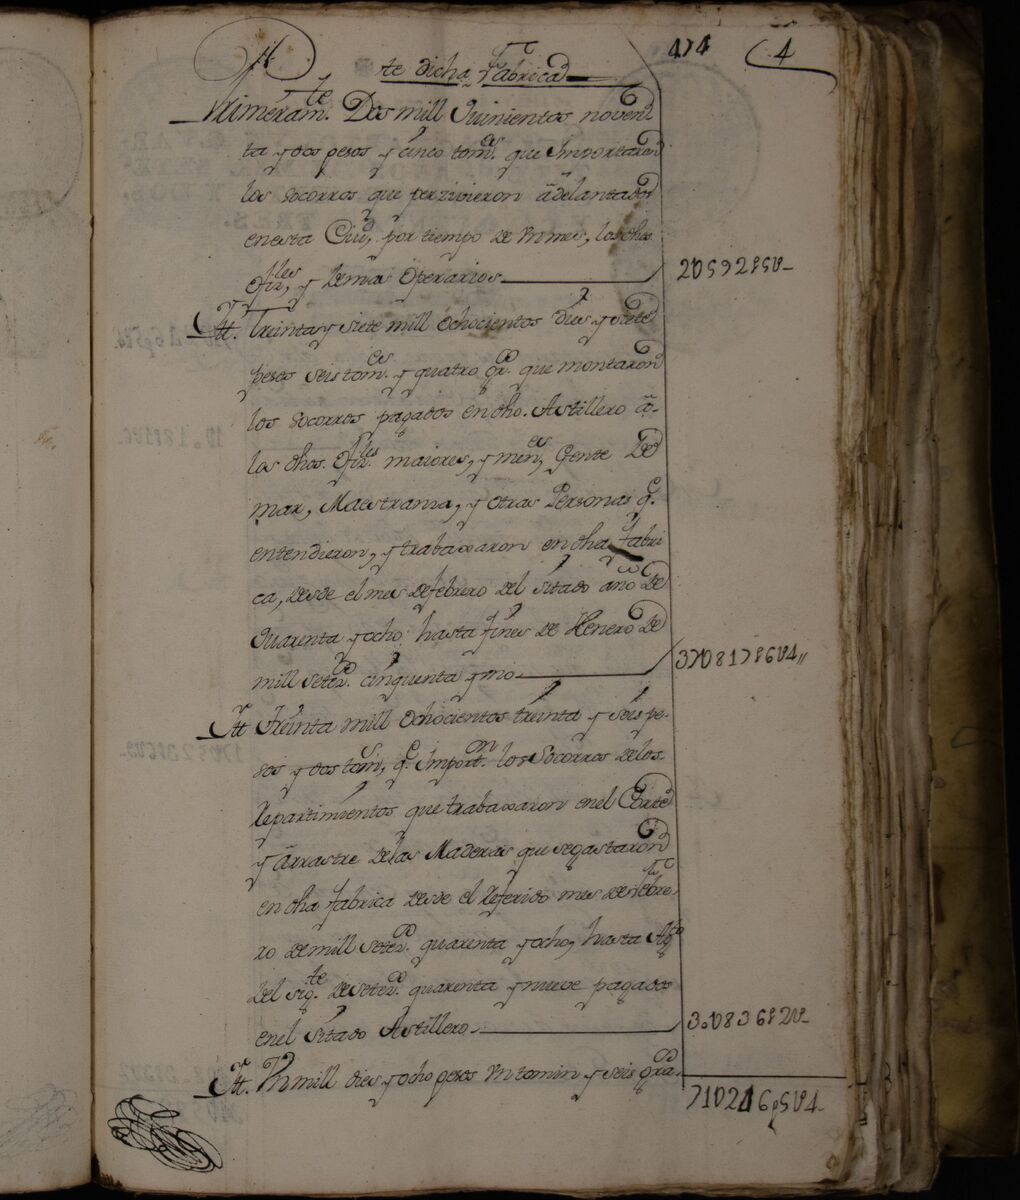 474 4
te dicha Fabrica
Primeram.te Dos mill Quinientos noven
ta y dos pesos y cinco tom.es que Importaron
los socorros que perzivieron adelantados
en esta Ciud, por tiempo de Vn mes, los dhos
ofiz.les, y demas Operarios
2U592p5U-
Ytt. Treinta y siete mill ochocientos dies y siete
pesos seis tom.es y quatro gr.os que montaron
los socorros pagados en dho. Astillero a-
los dhos. Ofiz.les maiores, y men.es, Gente de
mar, Maestranza, y otras Personas q.e
entendieron, y trabaxaron en dha fabri
ca, desde el mes de febrero del sitado año de
quarenta y ocho hasta fines de Henero de
mill setez.os cinquenta y uno
37U817p6U4
Ytt Treinta mill ochocientos treinta y seis pe-
sos y dos tom.s, q.e Import.n los Socorros de los
Repartimientos que trabaxaron en el Corte
y Arrastre de las Maderas que se gastaron
en dha fabrica desde el Referido mes de febre-
ro de mill setez.os quarenta y ocho, hasta Ag.to
del sig.te de setez.os quarenta y nueve pagados
en el sitado Astillero
30U836p2U-
Ytt. Vn mill dies y ocho pesos Vn tomin y seis gra.os
71U246p5U4-